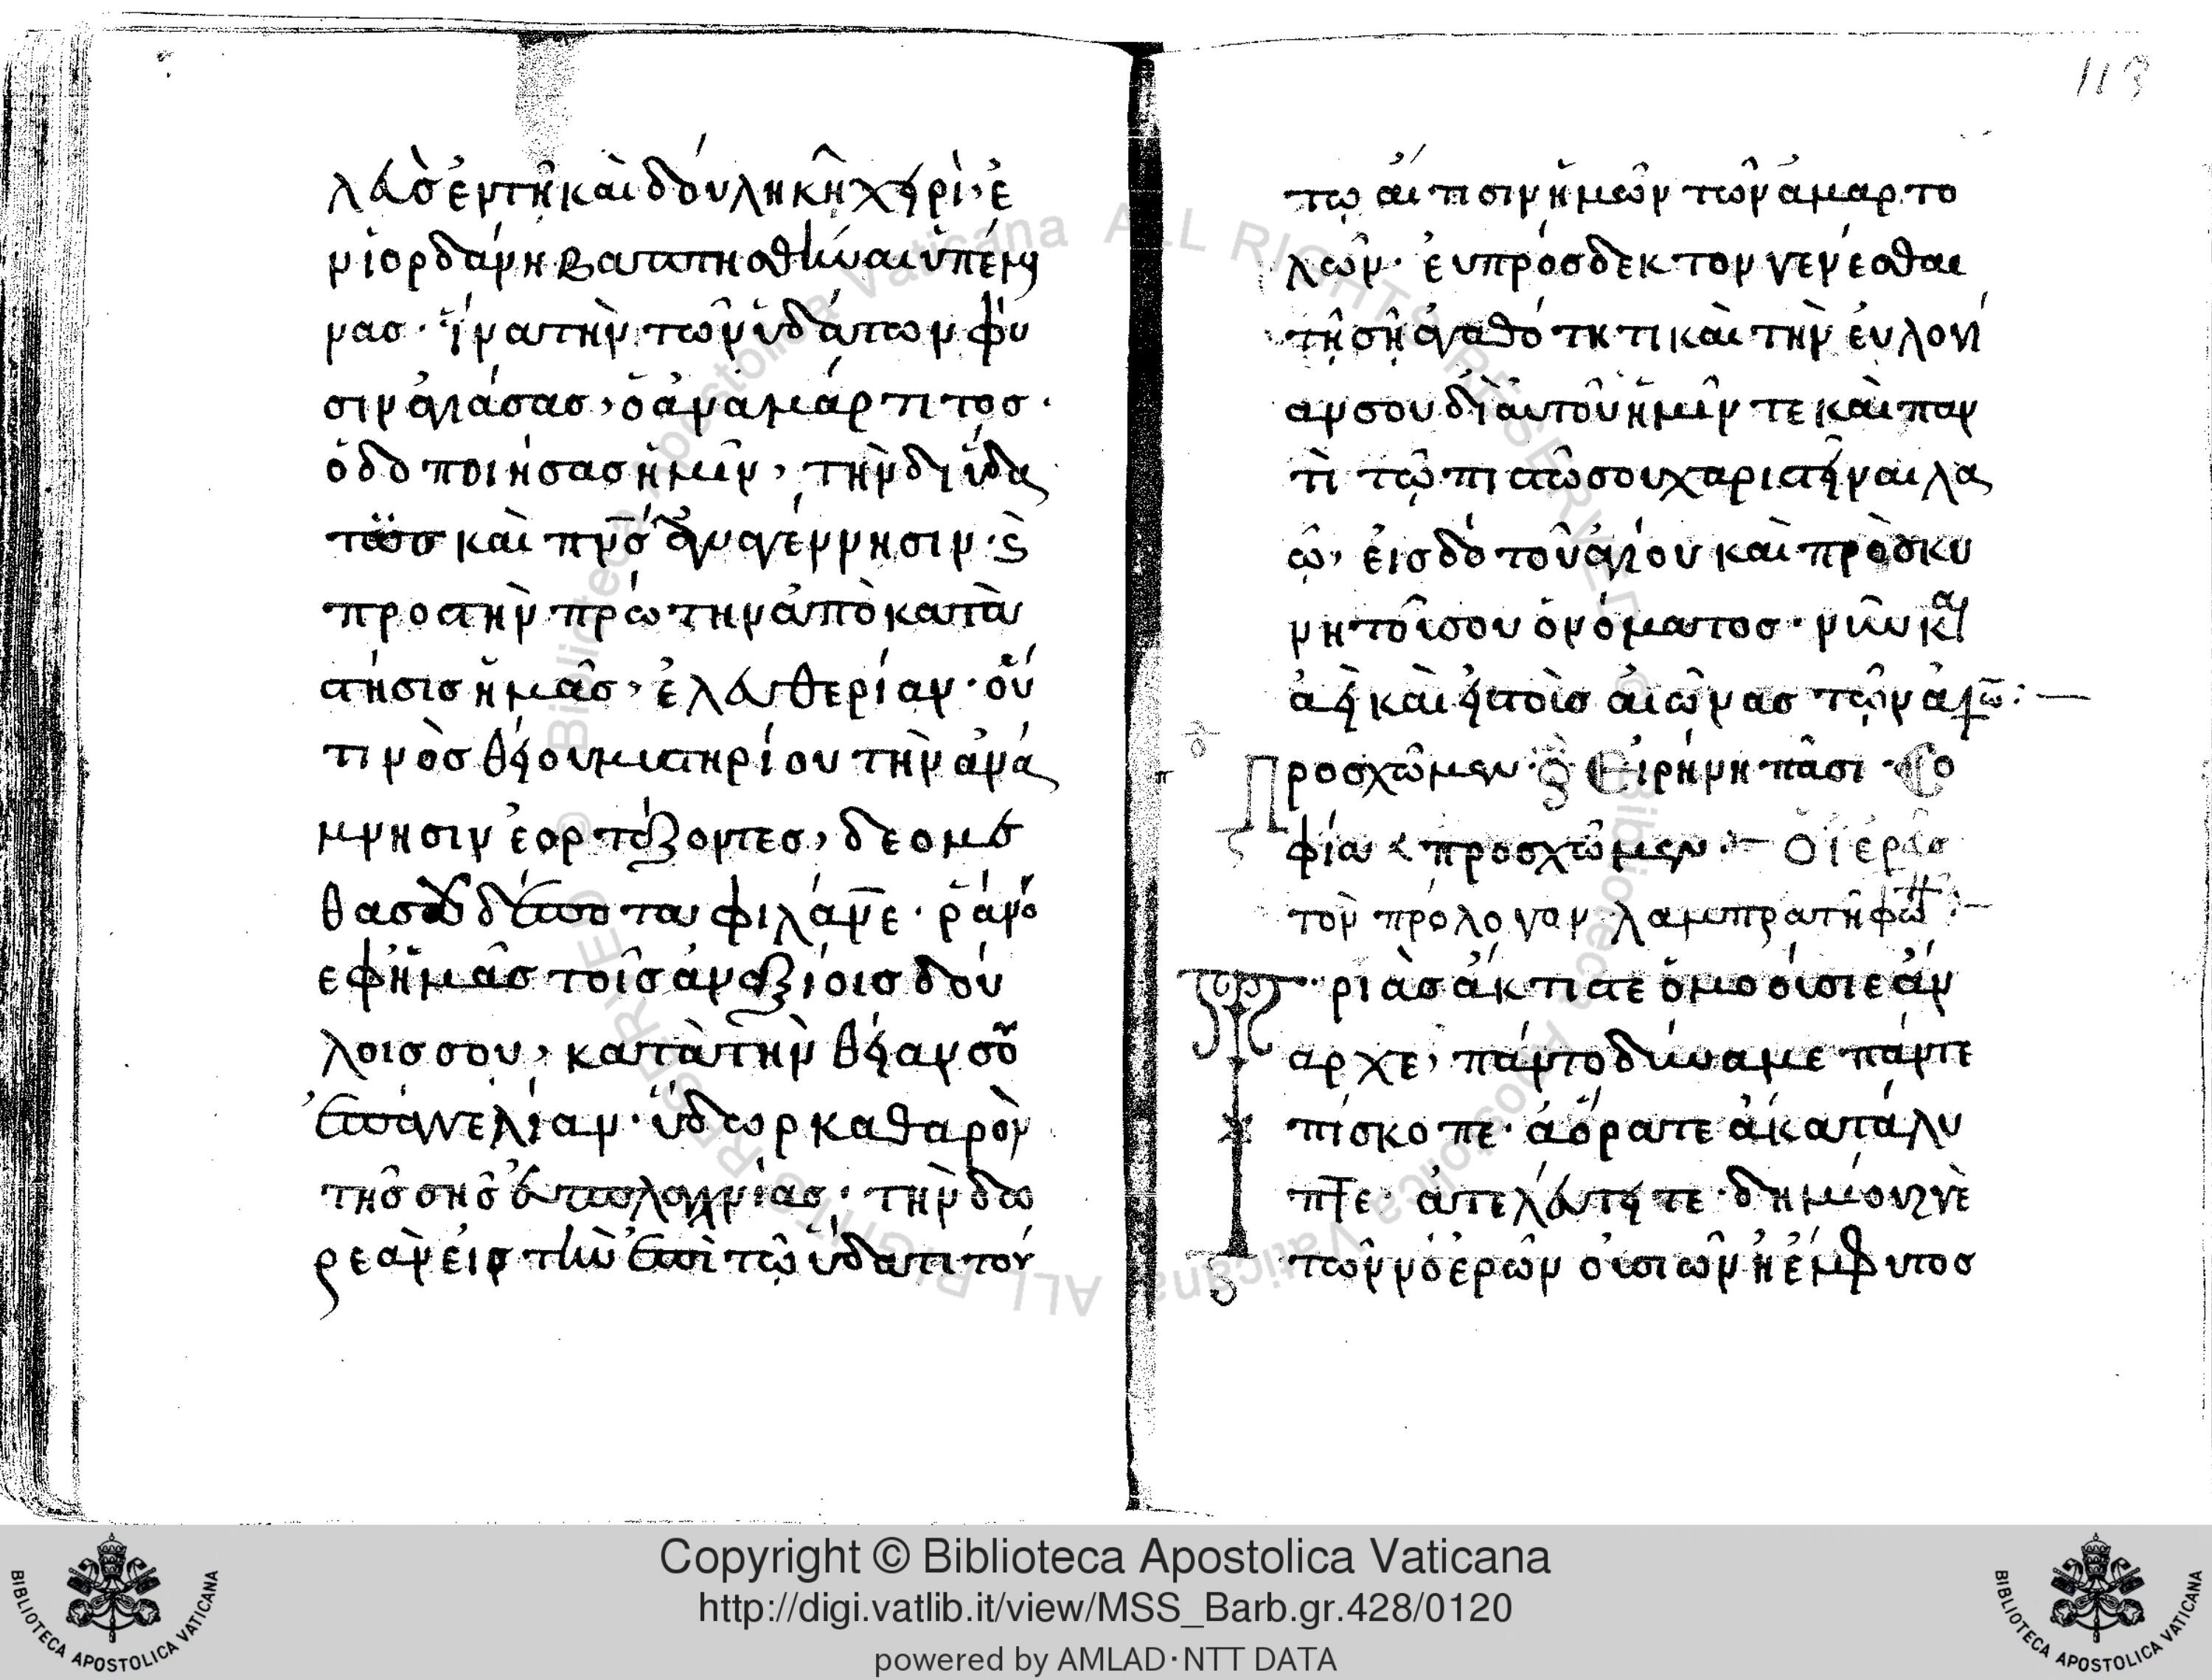 λεὺς ἐν τῆ καὶ δουληκῆ χειρὶ, ἐ
ν ἰορδάνη βαπτησθῆναι ὑπέμει
νας· ἵνα τὴν τῶν ὑδάτων φύ
σιν ἁγιάσας, ὁ ἀναμάρτιτος·
ὁδοποιήσας ἡμῖν, τὴν δι ὕδα
τος καὶ πν̅ς ἀναγέννησιν· ς̀
προς τὴν πρώτην ἀποκατα
στήσις ἡμᾶς, ἐλευθερίαν· οὗ
τινὸς θείου μυστηρίου τὴν ἀνά
μνησιν ἑορτάζοντες, δεομε
θα σου δέσποτα φιλάν̅ε· ῥάνο
εφ ἡμᾶς τοῖς ἀναξίοις δού
λοις σου, κατὰ τὴν θείαν σου
ἐπαγγελίαν· ὕδωρ καθαρὸν
τῆς σῆς εὐσπλαγχνίας· τὴν δω
ρεὰν εἰς τὴν ἐπὶ τῶ ὕδατι τού
113
τω αἴτησιν ἡμῶν τῶν ἁμαρτο
λῶν· ἐυπρόσδεκτον γενέσθαι
τῆ σῆ ἀγαθότητι καὶ τὴν ἐυλογί
αν σου δι ἀυτοῦ ἡμῖν τε καὶ παν
τὶ τῶ πιστῶ σου χαριστῆναι λα
ῶ, εἰς δό τοῦ ἁγίου καὶ πρὸσκυ
νητοῦ σου ὀνόματος· νῦν κ̅
ἀεὶ καὶ εἰς τοὺς αἰῶνας τῶν αἰω̅:—
Προσχῶμεν· Εἰρήνη πᾶσι· Σο
φία προσχῶμεν:— ὁ ἱερεὺς
τὸν πρόλογον λαμπρα τῆ φω:—
Τριὰς ἄκτιστε ὁμοούσιε ἄν
αρχε, πάντοδύναμε πάντε
πίσκοπε· ἀόρατε ἀκατάλυ
πτε· ἀτελεύτητε· δημιουργὲ
τῶν νόερῶν οὐσιῶν ἡ ἔμφυτος
Copyright © Biblioteca Apostolica Vaticana
http://digi.vatlib.it/view/MSS_Barb.gr.428/0120
powered by AMLAD·NTT DATA